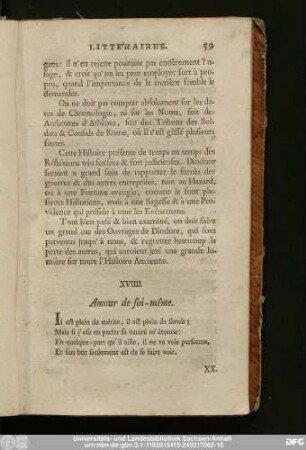 LITTERAIRES. 59
gues: il n'en rejette pourtant pas entiérement l'u-
sage, & croit qu'on les peut employer fort à pro-
pos, quand l'importance de la matière semble le
demander.
On ne doit pas compter absolument sur les da-
tes de Chronologie, ni sur les Noms, soit des
Archontes d'Athènes, soit des Tribuns des Sol-
dats & Consuls de Rome, où il s'est glissé plusieurs
fautes.
Cette Histoire présente de temps en temps des
Réfléxions très sensées & fort judicieuses. Diodore
surtout a grand soin de rapporter le succès des
guerres & des autres entreprises, non au Hazard,
ou à une Fortune aveugle, comme le font plu-
sieurs Historiens, mais à une Sagesse & à une Pro-
vidence qui préside à tous les Evénemens.
Tout bien pesé & bien examiné, on doit faire
un grand cas des Ouvrages de Diodore, qui sont
parvenus jusqu'à nous, & regretter beaucoup la
perte des autres, qui auroient jeté une grande lu-
mière sur toute l'Histoire Ancienne.
XVIIII.
Amour de soi-même.
Il est plein de mérite, il est plein de savoir;
Mais si j'ose en parler sa vanité m'étonne:
En quelque-part qu'il aille, il ne va voir personne,
Et son but seulement est de se faire voir.
XX.
Universitäts- und Landesbibliothek Sachsen-Anhalt
urn:nbn:de:gbv:3:1-1192015415-249217662-18